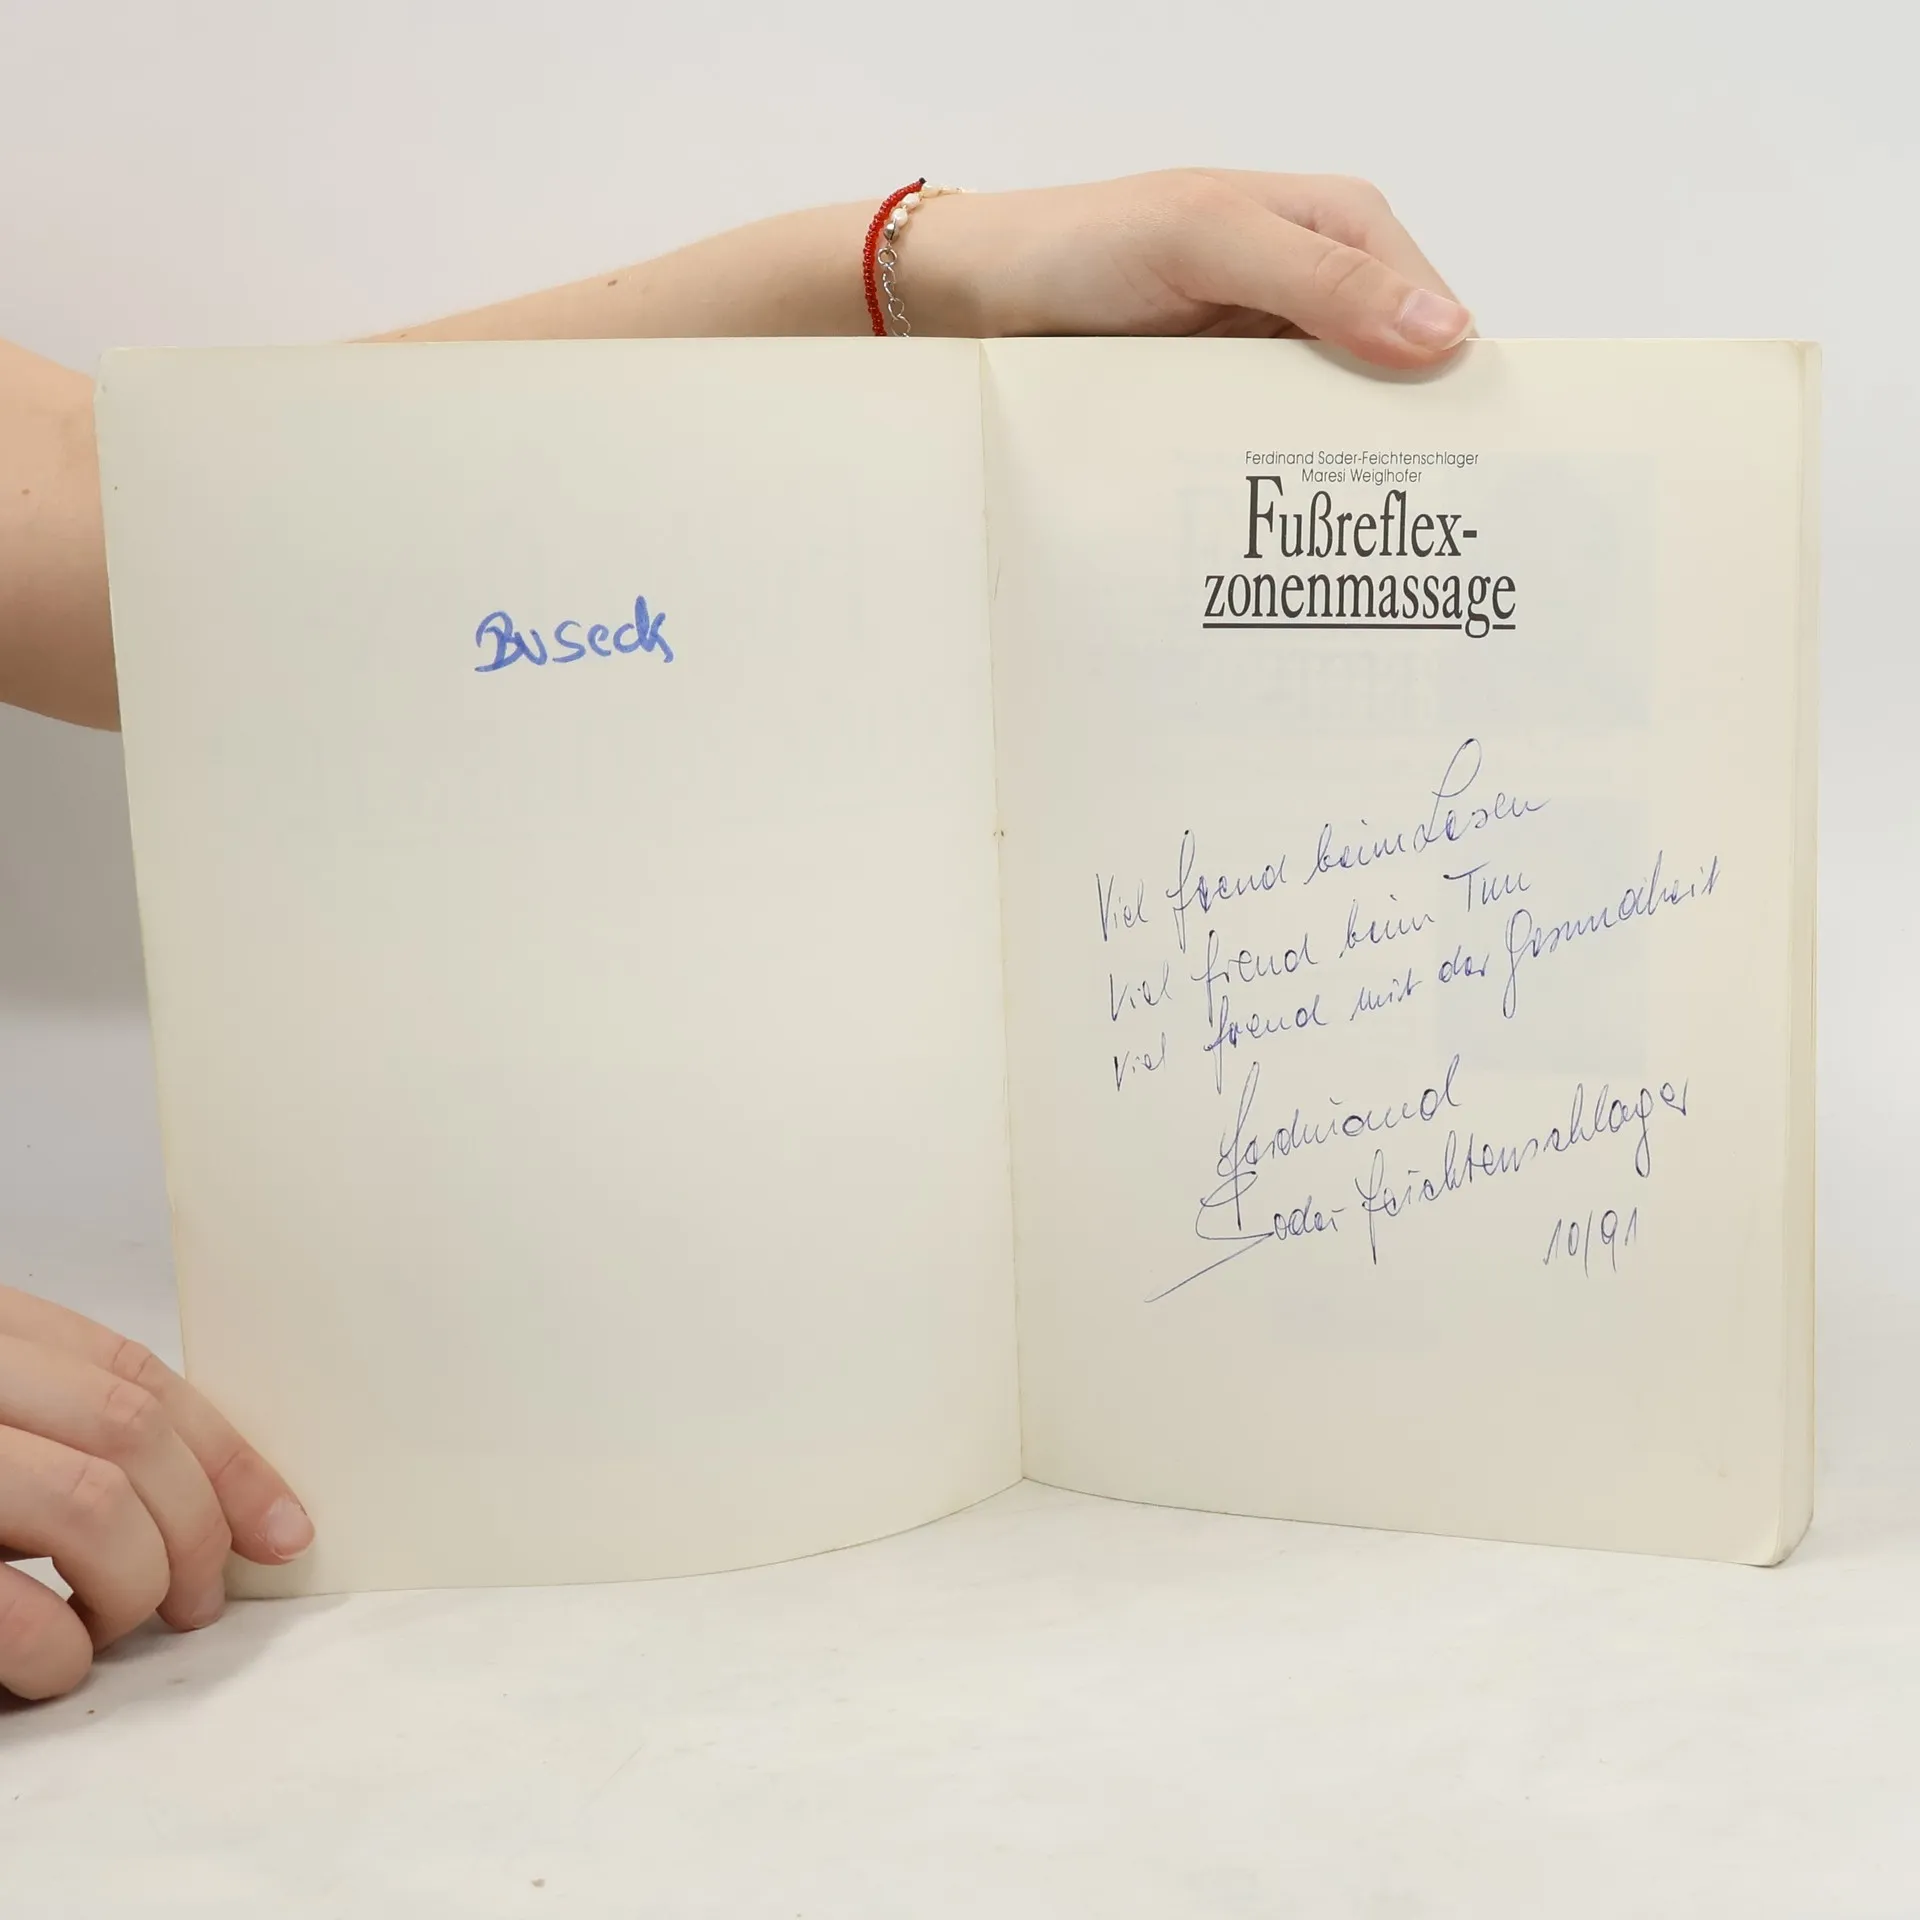 Buseck
Ferdinand Soder-Feichtenschlager
Maresi Weiglhofer
Fußreflex-
zonenmassage
Viel freud beim Lesen
Viel freud beim Tun
Viel freud mit der Gesundheit
Ferdinand
Soder Feichtenschlager
10/91